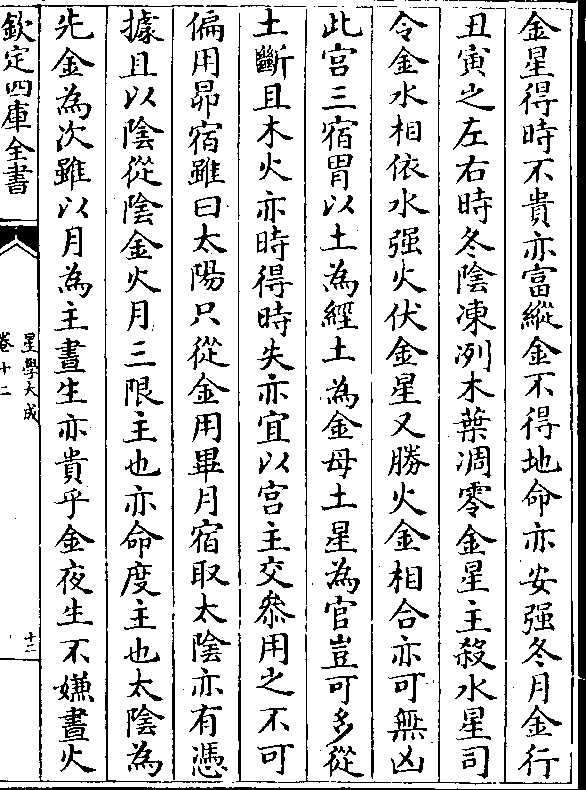 金星得時不貴亦富縱金不得地命亦安强冬月金行
丑寅之左右時冬陰凍冽木葉凋零金星主殺水星司
令金水相依水强火伏金星又勝火金相合亦可無凶
此宫三宿胃以土為經土為金母土星為官豈可多從
土斷且木火亦時得時失亦宜以宫主交叅用之不可
偏用昴宿雖曰太陽只從金用畢月宿取太陰亦有憑
據且以陰從陰金火月三限主也亦命度主也太陰為
先金為次雖以月為主晝生亦貴乎金夜生不嫌晝火
欽定四庫全書
星學大成
卷十二
十三